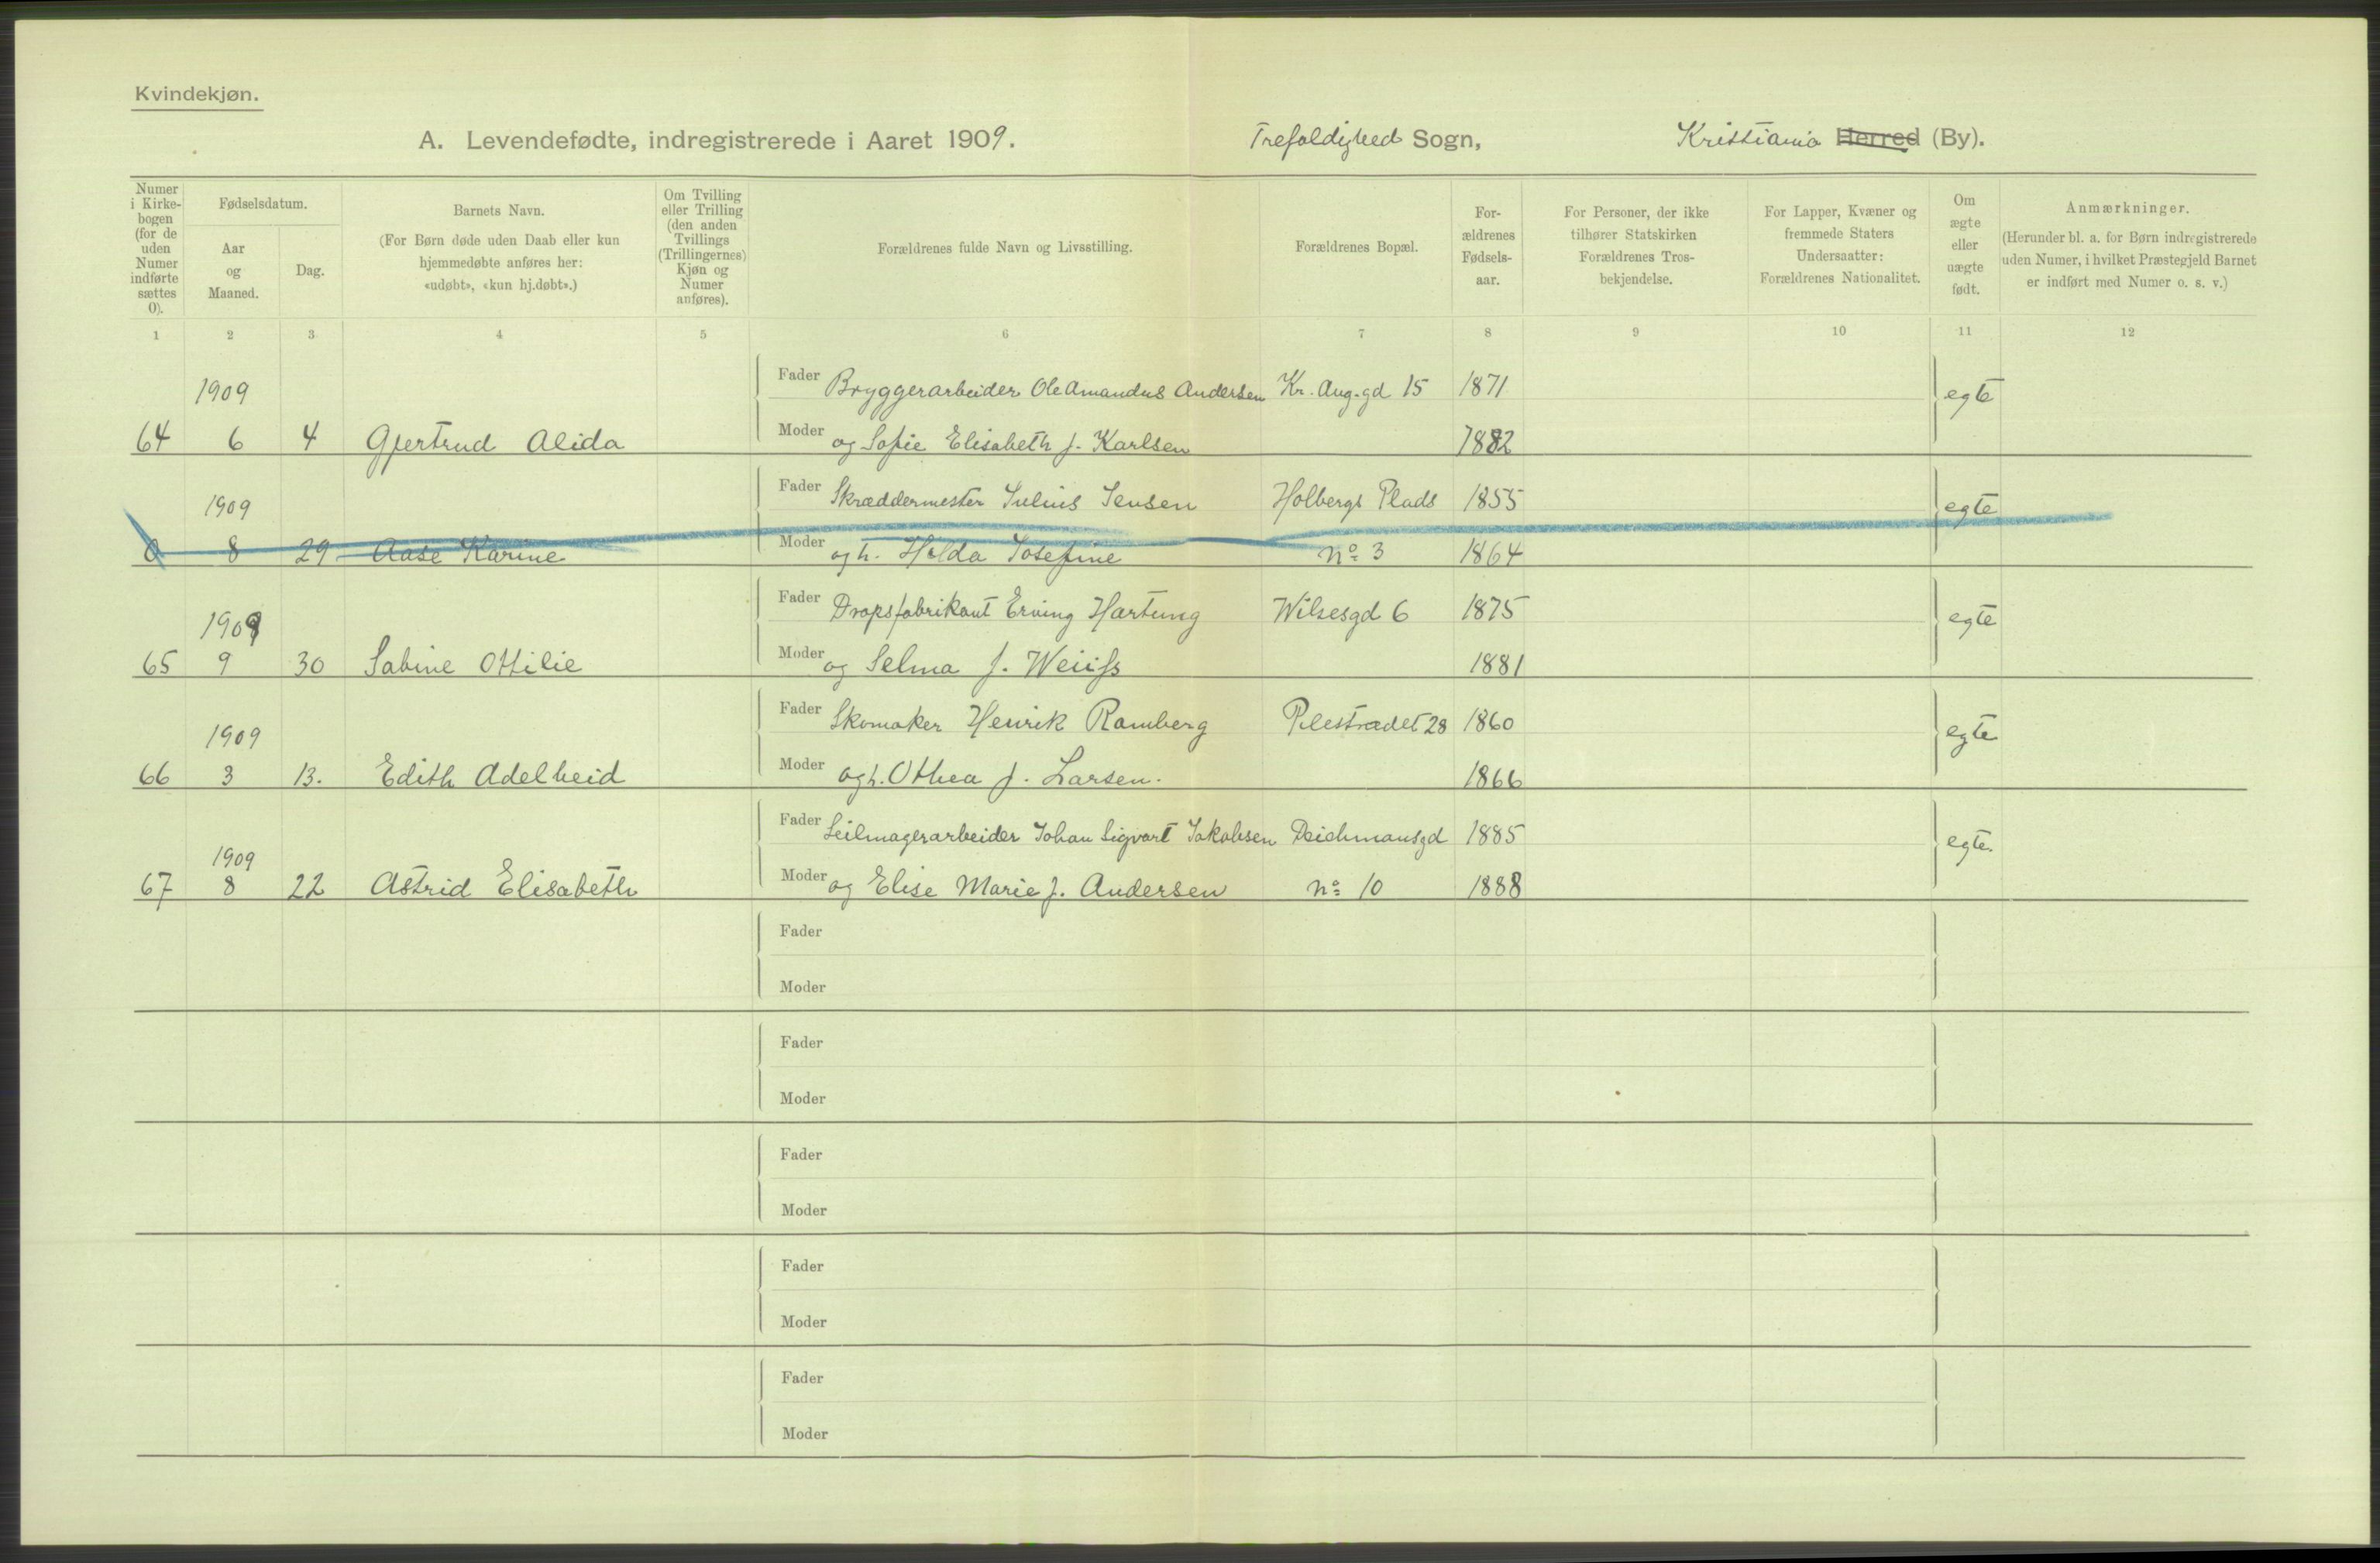 Kvindekjøn.
A. Levendefødte, indregistrerede i Aaret 1909. Trefoldighed Sogn, Kristiania Herred (By).
Numer i Kirke-bogen (for de uden Numer indførte sættes 0).
Fødselsdatum.
Aar og Maaned.
Dag.
Barnets Navn.
(For Børn døde uden Daab eller kun
hjemmedøbte anføres her:
«udøbt», «kun hj.døbt».)
Om Tvilling
eller Trilling
(den anden
Tvillings
(Trillingernes)
Kjøn og
Numer
anføres).
Forældrenes fulde Navn og Livsstilling.
Forældrenes Bopæl.
For-
ældrenes
Fødsels-
aar.
For Personer, der ikke
tilhører Statskirken
Forældrenes Tros-
bekjendelse.
For Lapper, Kvæner og
fremmede Staters
Undersaatter:
Forældrenes Nationalitet.
Om
ægte
eller
uægte
født.
Anmærkninger.
(Herunder bl. a. for Børn indregistrerede
uden Numer, i hvilket Præstegjeld Barnet
er indført med Numer o. s. v.)
1 2 3 4 5 6 7 8 9 10 11 12
1909 Fader Bryggerarbeider Ole Amandus Andersen Kr. Aug.gd 15 1871 egte
64 6 4 Gjertrud Alida Moder og Sofie Elisabeth f. Karlsen 1882
1909 Fader Skræddermester Julius Jensen Holbergs Plads 1855 egte
0 8 29 Aase Karine Moder og h. Hilda Josefine No 3 1864
1909 Fader Dropsfabrikant Erning Hartung Wilsesgd 6 1875 egte
65 9 30 Sabine Ottilie Moder og Selma f. Weiiss 1881
1909 Fader Skomaker Henrik Ramberg Pilestrædet 28 1860 egte
66 3 13. Edith Adelheid Moder og h. Othea f. Larsen. 1866
1909 Fader Seilmagerarbeider Johan Sigvart Jakobsen Deichmansgd 1885 egte.
67 8 22 Astrid Elisabeth Moder og Elise Marie f. Andersen No 10 1888
Fader
Moder
Fader
Moder
Fader
Moder
Fader
Moder
Fader
Moder